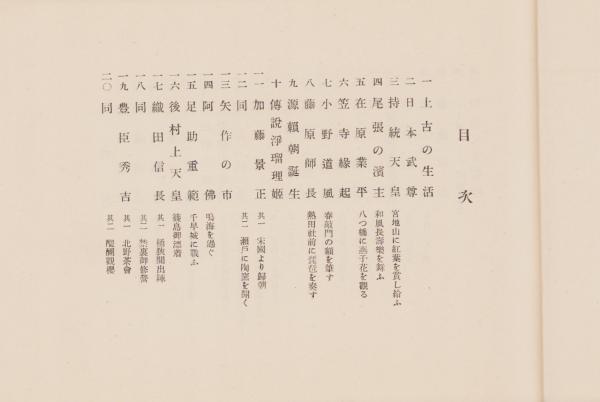 目次
一 上古の生活
二 日本武尊
三 持統天皇 宮地山に紅葉を賞し給ふ
四 尾張の濱主 和風長壽樂を舞ふ
五 在原業平 八つ橋に燕子花を觀る
六 笠寺緣起
七 小野道風 春敲門の額を筆す
八 藤原師長 熱田社前に琵琶を奏す
九 源賴朝誕生
十 傳說淨瑠璃姬
一一 加藤景正 其一 宋國より歸朝
一二 同 其二 瀨戶に陶窯を開く
一三 矢作の市
一四 阿佛 鳴海を過ぐ
一五 足助重範 千早城に戰ふ
一六 後村上天皇 篠島御漂着
一七 織田信長 其一 桶狹間出陣
一八 同 其二 禁裏御修營
一九 豐臣秀吉 其一 北野茶會
二〇 同 其二 醍醐觀櫻